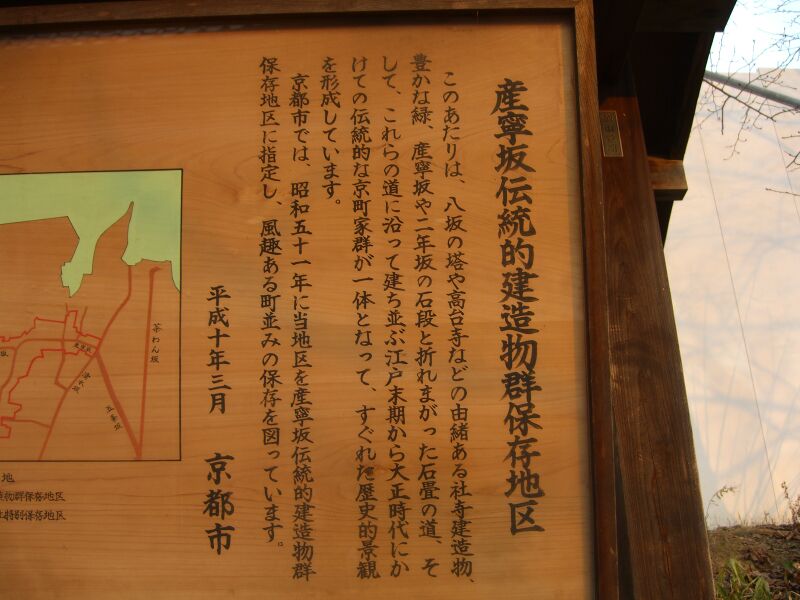 産寧坂伝統的建造物群保存地区
このあたりは、八坂の塔や高台寺などの由緒ある社寺建造物、
豊かな緑、産寧坂や二年坂の石段と折れまがった石畳の道、そ
して、これらの道に沿って建ち並ぶ江戸末期から大正時代にか
けての伝統的な京町家群が一体となって、すぐれた歴史的景観
を形成しています。
京都市では、昭和五十一年に当地区を産寧坂伝統的建造物群
保存地区に指定し、風趣ある町並みの保存を図っています。
平成十年三月 京都市
茶わん坂
五条坂
産寧坂
地
物群保存地区
特別保存地区